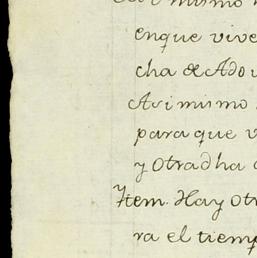 mismo
enque vive
cha de Ado
Asi mismo
para que v
y Otra dha
Ytem. Hay Otr
ra el tiemp